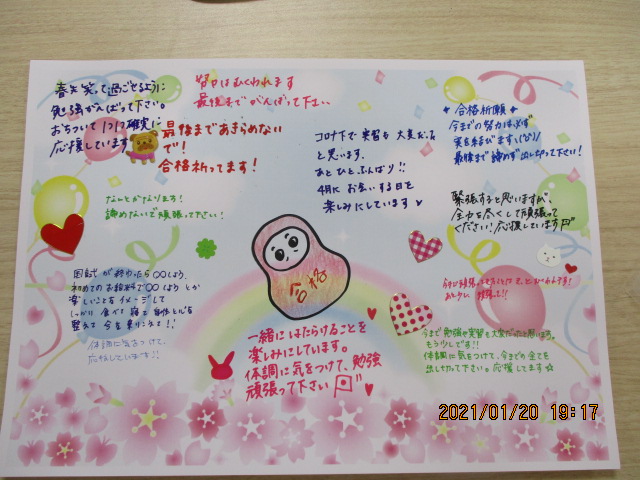 春に笑って過ごせるように
勉強がんばって下さい。
おちついて1つ1つ確実に
応援しています
努力はむくわれます
最後までがんばって下さい
最後まであきらめない
で!
合格祈ってます!
コロナ下で実習も大変だった
と思います。
あとひとふんばり!!
4月にお会いする日を
楽しみにしています
合格祈願
今までの努力は必ず
実を結びます\(^o^)/
最後まで諦めず出し切って下さい!
なんとかなります!
諦めないで頑張って下さい!
緊張すると思いますが、
全力を尽くして頑張って
ください!応援しています
国試が終わったら〇〇しよう、
初めてのお給料で〇〇しようとか
楽しいことをイメージして
しっかり食べて寝て身体と心を
整えて今を乗りこえて!!
体調に気をつけて、
応援しています!!
合格
一緒にはたらけることを
楽しみにしています。
体調に気をつけて、勉強
頑張って下さい
今まで勉強や実習も大変だったと思います。
もう少しです!!
体調に気をつけて、今までの全てを
出し切って下さい。応援してます☆
2021/01/20 19:17